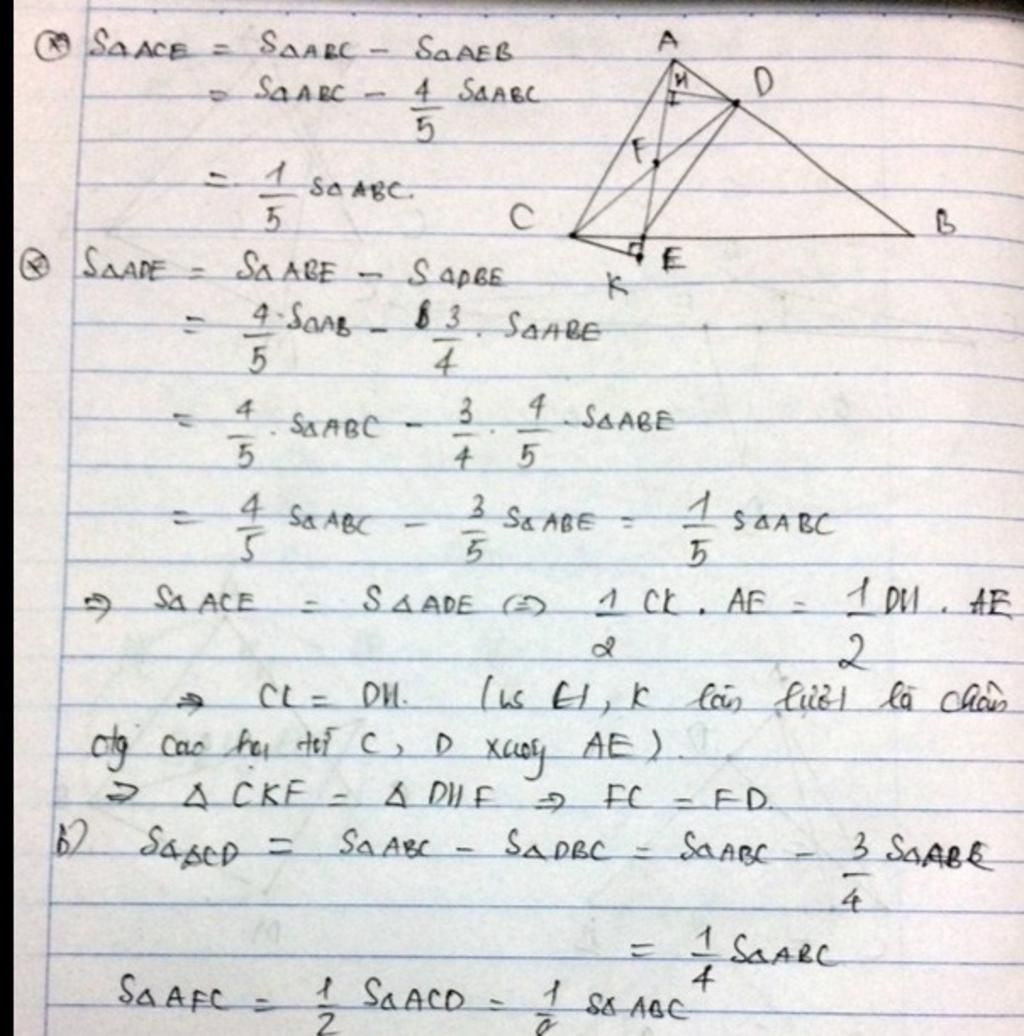 (*) SΔACE = SΔABC - SΔAEB
= SΔABC - 4/5 SΔABC
= 1/5 SΔABC.
A
H
D
F
C
B
K
E
(*) SΔADE = SΔABE - SΔDBE
= 4/5 . SΔAB - 3/4 . SΔABE
= 4/5 . SΔABC - 3/4 . 4/5 . SΔABE
= 4/5 SΔABC - 3/5 SΔABE = 1/5 SΔABC
⇒ SΔACE = SΔADE ⇔ 1/2 CK . AE = 1/2 DH . AE
⇒ CK = DH. (Vs H, K lần lượt là chân
đg cao hạ từ C, D xuống AE).
⇒ ΔCKF = ΔDHF ⇒ FC = FD.
b) SΔACD = SΔABC - SΔDBC = SΔABC - 3/4 SΔABC
= 1/4 SΔABC
SΔAFC = 1/2 SΔACD = 1/8 SΔABC